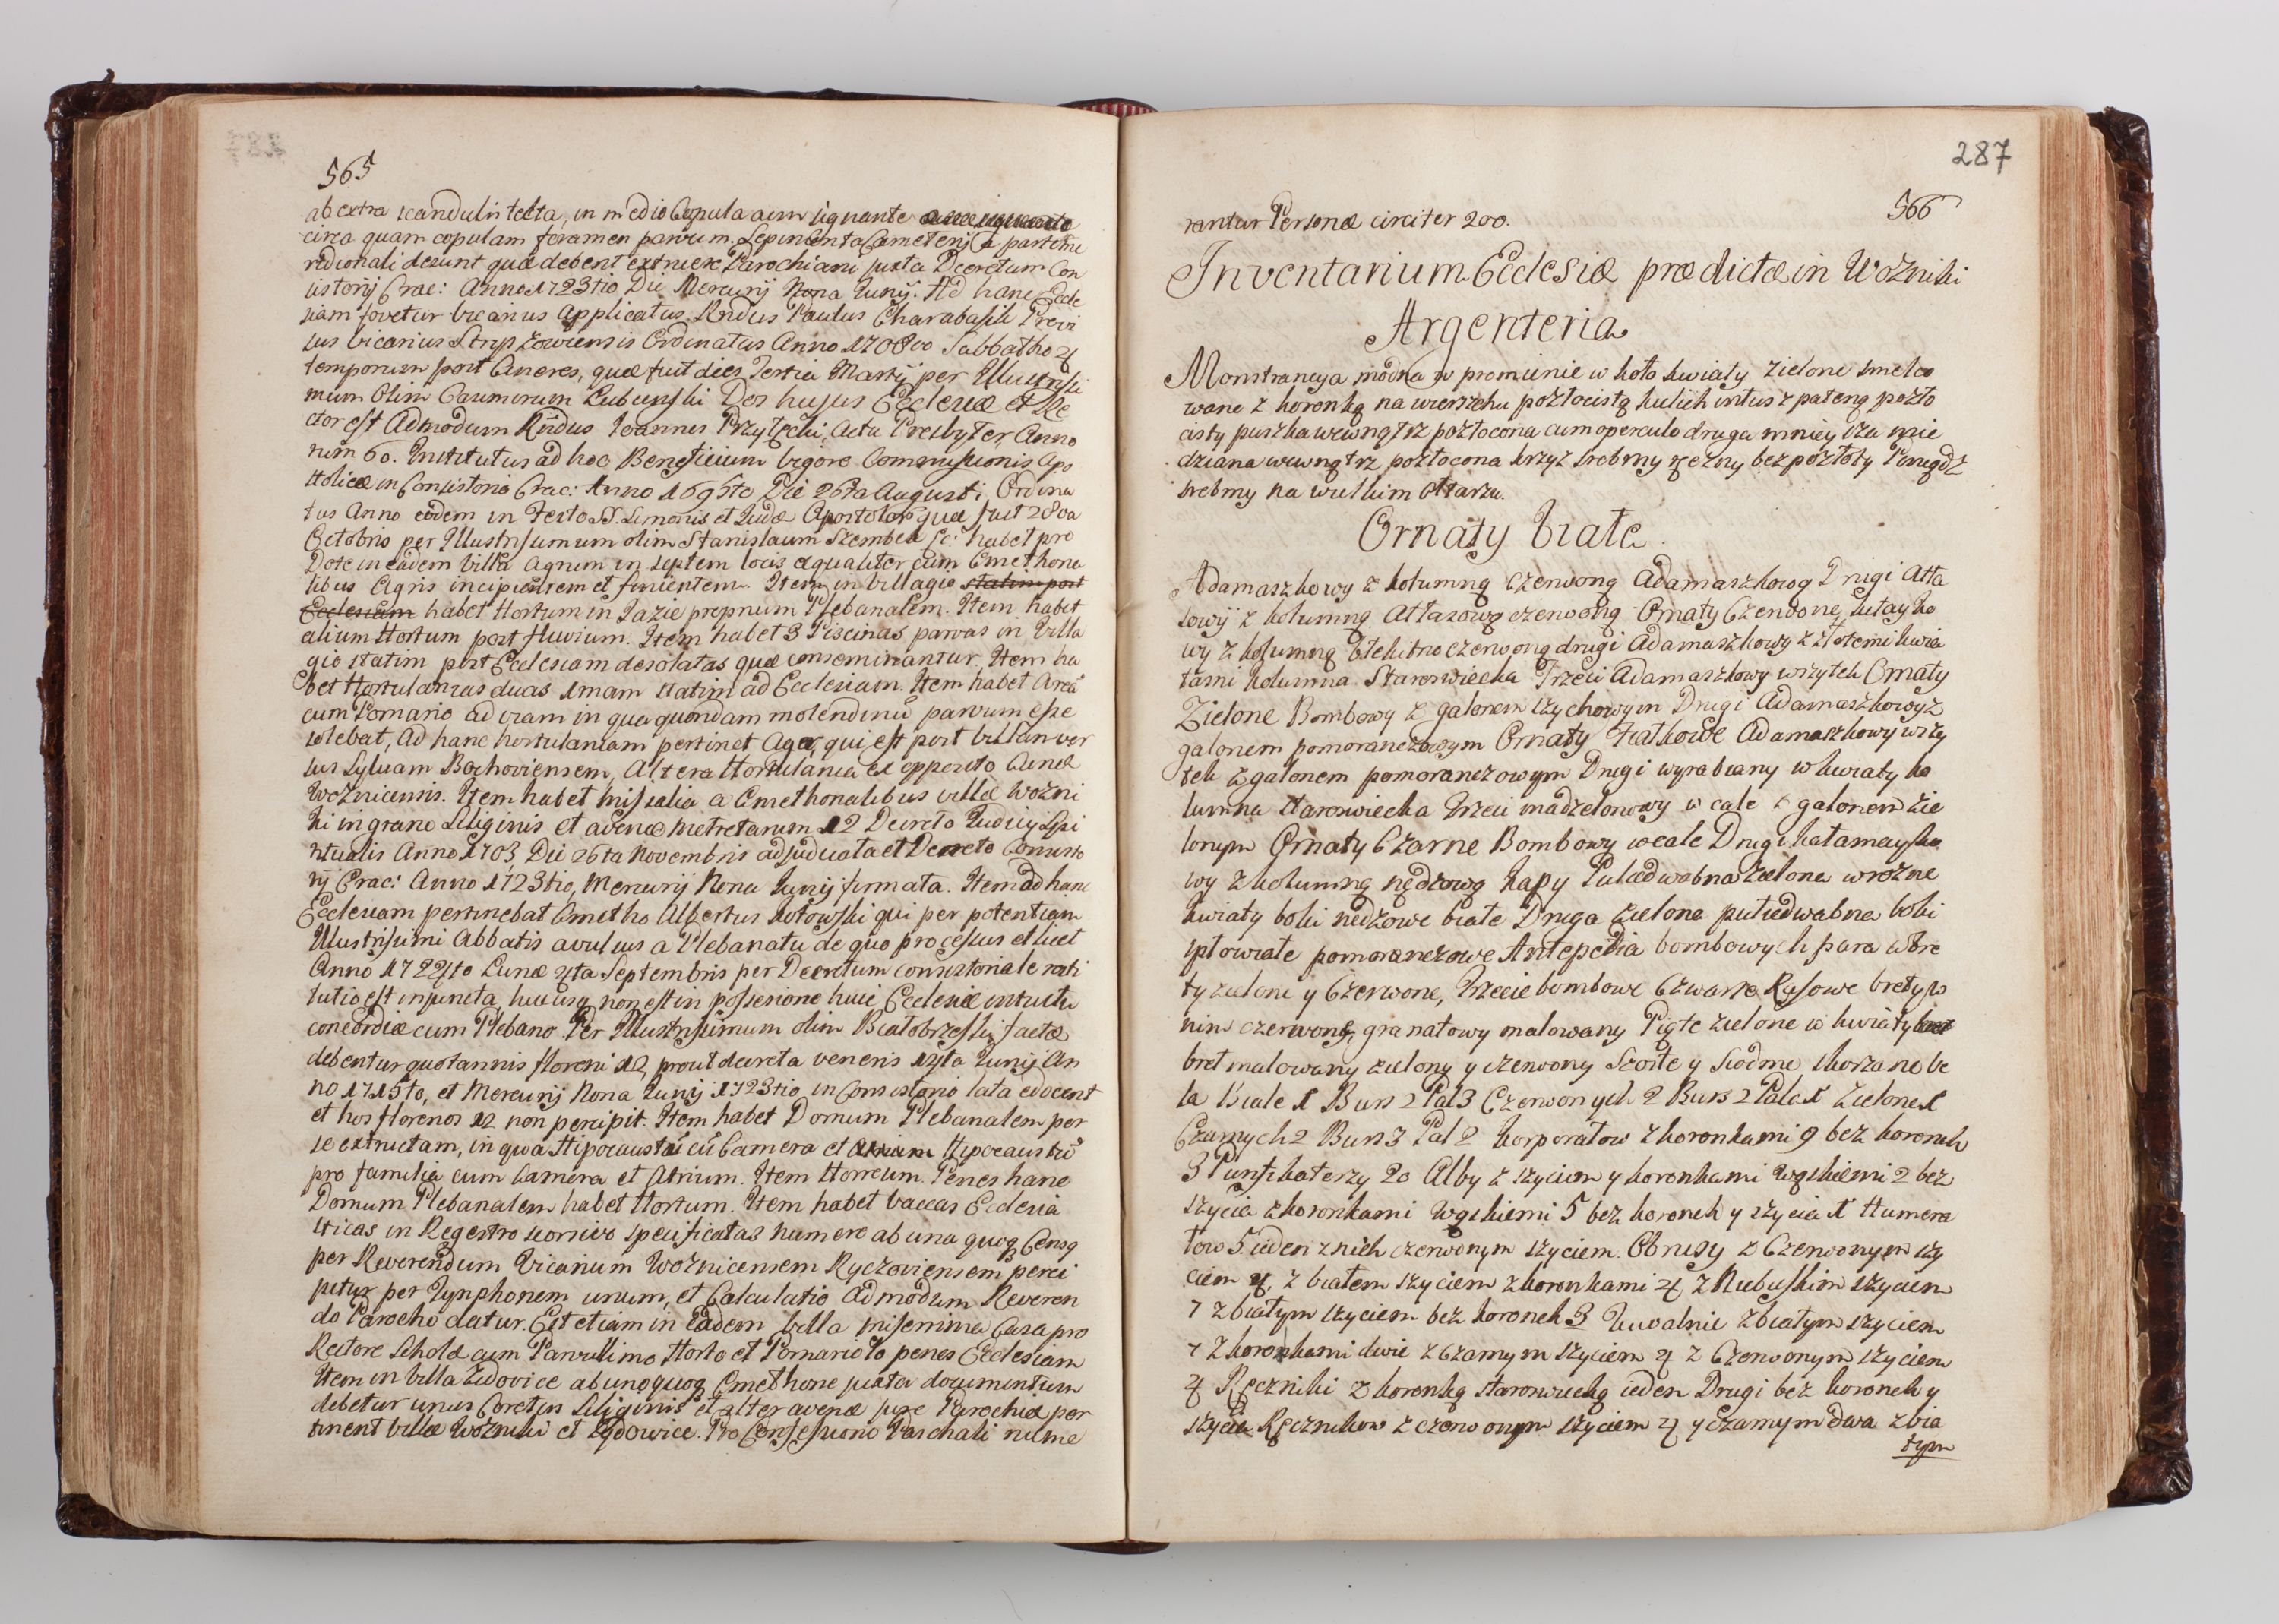 565
ab extra scandulis tecta, in medio Copula aem signante
circa quam copulam foramen parvum. Sepimenta Cæmeterij a parte me
ridionali desunt quæ debent extruere Parochiani juxta Decretum Con
sistorij Crac: Anno 1723tio Die Mercurij Nona Junij. Ad hanc Eccle
siam fovetur vicarius applicatus Rndus Paulus Charabasik Previ
sus vicarius Stryszowiensis Ordinatus Anno 1708vo Sabbatho 4
temporum post Cineres, quæ fuit dies Tertia Martij per Illustrissi
mum olim Casimirum Łubienski Dos hujus Ecclesiæ et Re
ctor est Admodum Rndus Joannes Przyłęcki, actu Presbyter Anno
rum 60. Institutus ad hoc Beneficium vigore Commissionis Apo
stolicæ in Consistorio Crac: Anno 1695to Die 26ta Augusti, Ordina
tus Anno eodem in Festo SS. Simonis et Judæ Apostolor quæ fuit 28va
Octobris per Illustrissimum olim Stanislaum Szembek &c: habet pro
Dote in eadem villa agrum in septem locis æqualiter cum Cmethona
libus Agris incipientem et finientem. Item in villagio statim post
Ecclesiam habet Hortum in Łazie proprium Plebanalem. Item habet
alium Hortum post fluvium. Item habet 3 Piscinas parvas in villa
gio statim post Ecclesiam desolatas quæ conseminantur. Item ha
bet Hortulanias duas 1mam statim ad Ecclesiam. Item habet Area
cum Pomario ad viam in qua quondam molendinu parvum esse
solebat, Ad hanc hortulaniam pertinet Ager, qui est post villam ver
sus Sylvam Bachoviensem, Altera Hortulania ex opposito Curiæ
Woznicensis. Item habet missalia a Cmethonalibus villæ Wozni
ki in grano Siliginis et avenæ metretarum 12 Decreto Judicij Spi
ritualis Anno 1703 Die 26ta Novembris adjudicata et Decreto Consisto
rij Crac: Anno 1723tio, Mercurij Nona Junij firmata. Item ad hanc
Ecclesiam pertinebat Cmetho Albertus Kotowski qui per potentiam
Illustrissimi Abbatis avulsus a Plebanatu de quo processus et licet
Anno 1724to Lunæ 4ta Septembris per Decretum consistoriale resti
tutio est injuncta, hucusq non est in possesione huic Ecclesiæ intuitu
concordiæ cum Plebano Per Illustrissimum olim Białobrzeski factæ
debentur quotannis floreni 12, prout decreta veneris 14ta Junij An
no 1715to, et Mercurij Nona Junij 1723tio in Consistorio lata edocent
et hos florenos 12 non percipit. Item habet Domum Plebanalem per
se extructam, in qua Hipocaustu cu Camera et Hipocaustu
pro familia cum Camera et Atrium. Item Horreum. Penes hanc
Domum Plebanalem habet Hortum. Item habet vaccas Ecclesia
sticas in Regestro scorsivo specificatas numero ab una quaq Censq
per Reverendum Vicarium Woznicensem Ryczoviensem perci
pitur per Tynphonem unum, et Calculatio Admodum Reveren
do Parocho datur. Est etiam in Eadem Villa miserrima Casa pro
Rectore Scholæ cum Parvulimo Horto et Pomariolo penes Ecclesiam
Item in Villa Zidovice ab unoquoq Cmethone juxta documentum
debetur unus Coretus Siliginis et alter avenæ jure Parochiæ per
tinent villæ Wozniki et Zydowice. Pro Confessione Paschali nume
287
566
rantur Personæ circiter 200.
Inventarium Ecclesiæ prædictæ in Wozniki
Argenteria
Monstrancya modna w promienie w koło kwiaty zielone smelco
wane z koronką na wierzchu pozłocistą kielich intus z pateną pozło
cisty puszka wewnątrz pozłocona cum operculo druga mnieysza mie
dziana wewnątrz pozłocona krzyz srebrny ręczny bez pozłoty Penegdz
srebrny na wielkim ołtarzu.
Ornaty białe
Adamaszkowy z kolumną czerwoną Adamaszkową Drugi Atła
sowy z kolumną Atłasową czerwoną Ornaty Czerwone, kitayko
wy z kolumną błekitno czerwoną drugi Adamaszkowy z złotemi kwia
tami kolumna Staroswiecka Trzeci Adamaszkowy wszytek Ornaty
Zielone Bombowy z galonem szychowym Drugi Adamaszkowy z
galonem pomoranczowym Ornaty Fiałkowe Adamaszkowy wszy
tek z galonem pomoranczowym Drugi wyrabiany w kwiaty ko
lumna Staroswiecka Trzeci madzelonowy w cale z galonem zie
lonym Ornaty Czarne Bombowy wcale Drugi kałamayko
wy z kolumną nędzową Kapy Pułiedwabna zielona w rozne
kwiaty boki nędzowe białe Druga zielona pułiedwabna boki
spłowiałe pomoranczowe Antepedia bombowych para w bre
ty zielone y Czerwone, Trzecie bombowe Czwarte Rąsowe brety w
nim czerwony, granatowy malowany Piąte zielone w kwiaty
bret malowany zielony y czerwony Szoste y Siodme skorzane be
la Białe 1 Burs 2 Pal 3 Czerwonych 2 Burs 2 Pala 1 Zielone 1
Czarnych 2 Burs 3 Pal 2 korporałow z koronkami 9 bez koronek
3 Puryfikaterzy 20 Alby z szyciem y koronkami Wąskiemi 2 bez
szycia z koronkami Wąskiemi 5 bez koronek y szycia 1 Humera
łow 5 ieden z nich czerwonym szyciem. Obrusy z Czerwonym szy
ciem 4, z białem szyciem z koronkami 4 z Niebieskim szyciem
7 z białym szyciem bez koronek 3 Tuwalnie z białym szyciem
7 z koronkami dwie z Czarnym szyciem 4 z Czerwonym szyciem
4 Ręczniki z koronką staroswiecką ieden Drugi bez koronek y
szycia Ręcznikow z czerwonym szyciem 4 y czarnym dwa z bia
łym